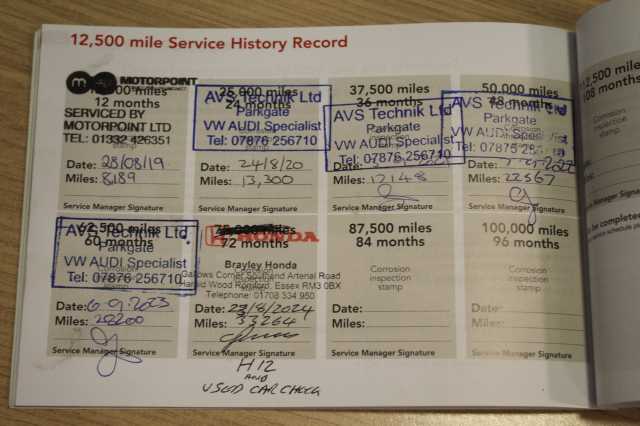 12,500 mile Service History Record
MOTORPOINT
12 months
SERVICED BY
MOTORPOINT LTD
TEL: 01332 426351
stamp
Date: 28/08/19
Miles: 8189
Service Manager Signature
25,000 miles
24 months
AVS Technik Ltd
Parkgate
VW AUDI Specialist
Tel: 07876 256710
stamp
Date: 24/8/20
Miles: 13,300
Service Manager Signature
37,500 miles
36 months
AVS Technik Ltd
Parkgate
VW AUDI Specialist
Tel: 07876 256710
Date:
Miles: 17148
Service Manager Signature
50,000 miles
48 months
AVS Technik Ltd
Parkgate
VW AUDI
Tel: 07876
Date:
Miles: 22567
Service Manager Signature
62,500 miles
60 months
AVS Technik Ltd
VW AUDI Specialist
Tel: 07876 256710
Date: 6.9.2023
Miles: 28200
Service Manager Signature
HONDA
72 months
Brayley Honda
Gallows Corner Southend Arterial Road
Harold Wood Romford, Essex RM3 0BX
Telephone: 01708 334 950
Date: 23/8/2024
Miles: 33264
Service Manager Signature
H12
AND
USED CAR CHECK
87,500 miles
84 months
Corrosion
inspection
stamp
Date:
Miles:
Service Manager Signature
100,000 miles
96 months
Corrosion
inspection
stamp
Date:
Miles:
Service Manager Signature
112,500 miles
108 months
Corrosion
inspection
stamp
Date:
Miles:
Service Manager